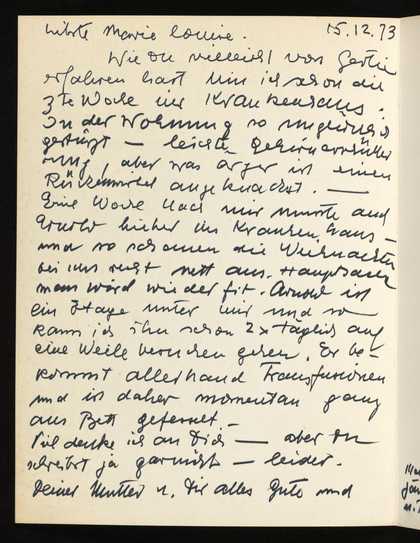 Liebste Marie Louise. 15.12.73
Wie Du vielleicht von Gertie
erfahren hast bin ich schon die
3te Woche im Krankenhaus.
In der Wohnung so unglücklich
gestürzt — leichte Gehirnerschütter
ung, aber was ärger ist einen
Rückenwirbel angeknackst. —
Eine Woche nach mir musste auch
Arnold hieher ins Krankenhaus —
und so schauen die Weihnachten
bei uns recht nett aus. Hauptsache
man wird wieder fit. Arnold ist
ein Etage unter mir und so
kann ich ihn schon 2x täglich auf
eine Weile besuchen gehen. Er be-
kommt allerhand Transfusionen
und ist daher momentan ganz
ans Bett gefesselt. —
Viel denke ich an Dich — aber Du
schreibst ja garnicht — leider.
Deiner Mutter u. Dir alles Gute und